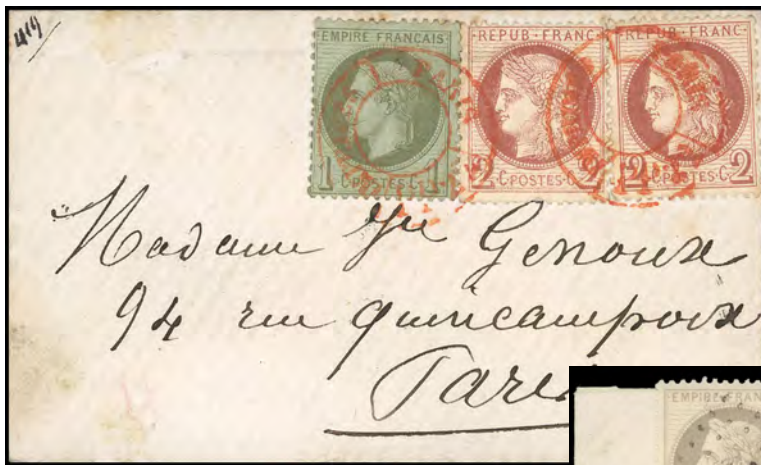 419
EMPIRE FRANCAIS
1 C POSTES C 1
REPUB FRANC
2 C POSTES C 2
REPUB FRANC
2 C POSTES C 2
Madame Genoux
94 rue quincampoix
Paris
EMPIRE FRAN